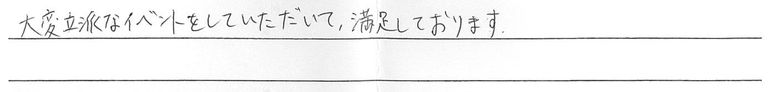 大変立派なイベントをしていただいて,満足しております.